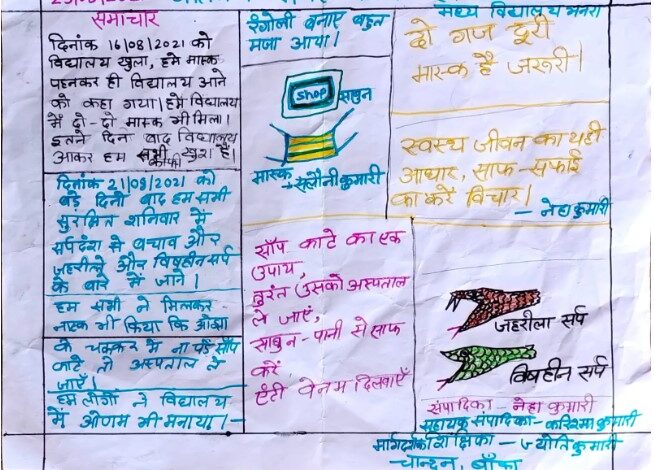 समाचार
दिनांक 16/08/2021 को
विद्यालय खुला, हमे मास्क
पहनकर ही विद्यालय आने
को कहा गया। हमे विद्यालय
में दो-दो मास्क भी मिला।
इतने दिन बाद विद्यालय
आकर हम सभी काफी खुश हैं।
दिनांक 21/08/2021 को
बड़े दिनो बाद हम सभी
सुरक्षित शनिवार में
सर्पदंश से बचाव और
जहरीले और विषहीन सर्प
के बारे में जाने।
हम सभी ने मिलकर
नाटक भी किया कि ओझा
के चक्कर में ना पड़े साँप
काटे, तो अस्पताल ले
जाएँ।
हम लोगों ने विद्यालय
में ओणम भी मनाया।-
रंगोली बनाए बहुत
मजा आया।
shop साबुन
मास्क
- सलोनी कुमारी
साँप काटे का एक
उपाय,
तुरंत उसको अस्पताल
ले जाएं,
साबुन-पानी से साफ
करें
एंटी वेनम दिलवाएँ
मध्य विद्यालय
दो गज दूरी
मास्क है जरूरी।
स्वस्थ जीवन का यही
आधार, साफ-सफाई
का करें विचार।
- नेहा कुमारी
जहरीला सर्प
विषहीन सर्प
संपादिका- नेहा कुमारी
सहायक संपादिका- करिश्मा कुमारी
मार्गदर्शिका शिक्षिका - ज्योति कुमारी
-चान्दन, बाँका